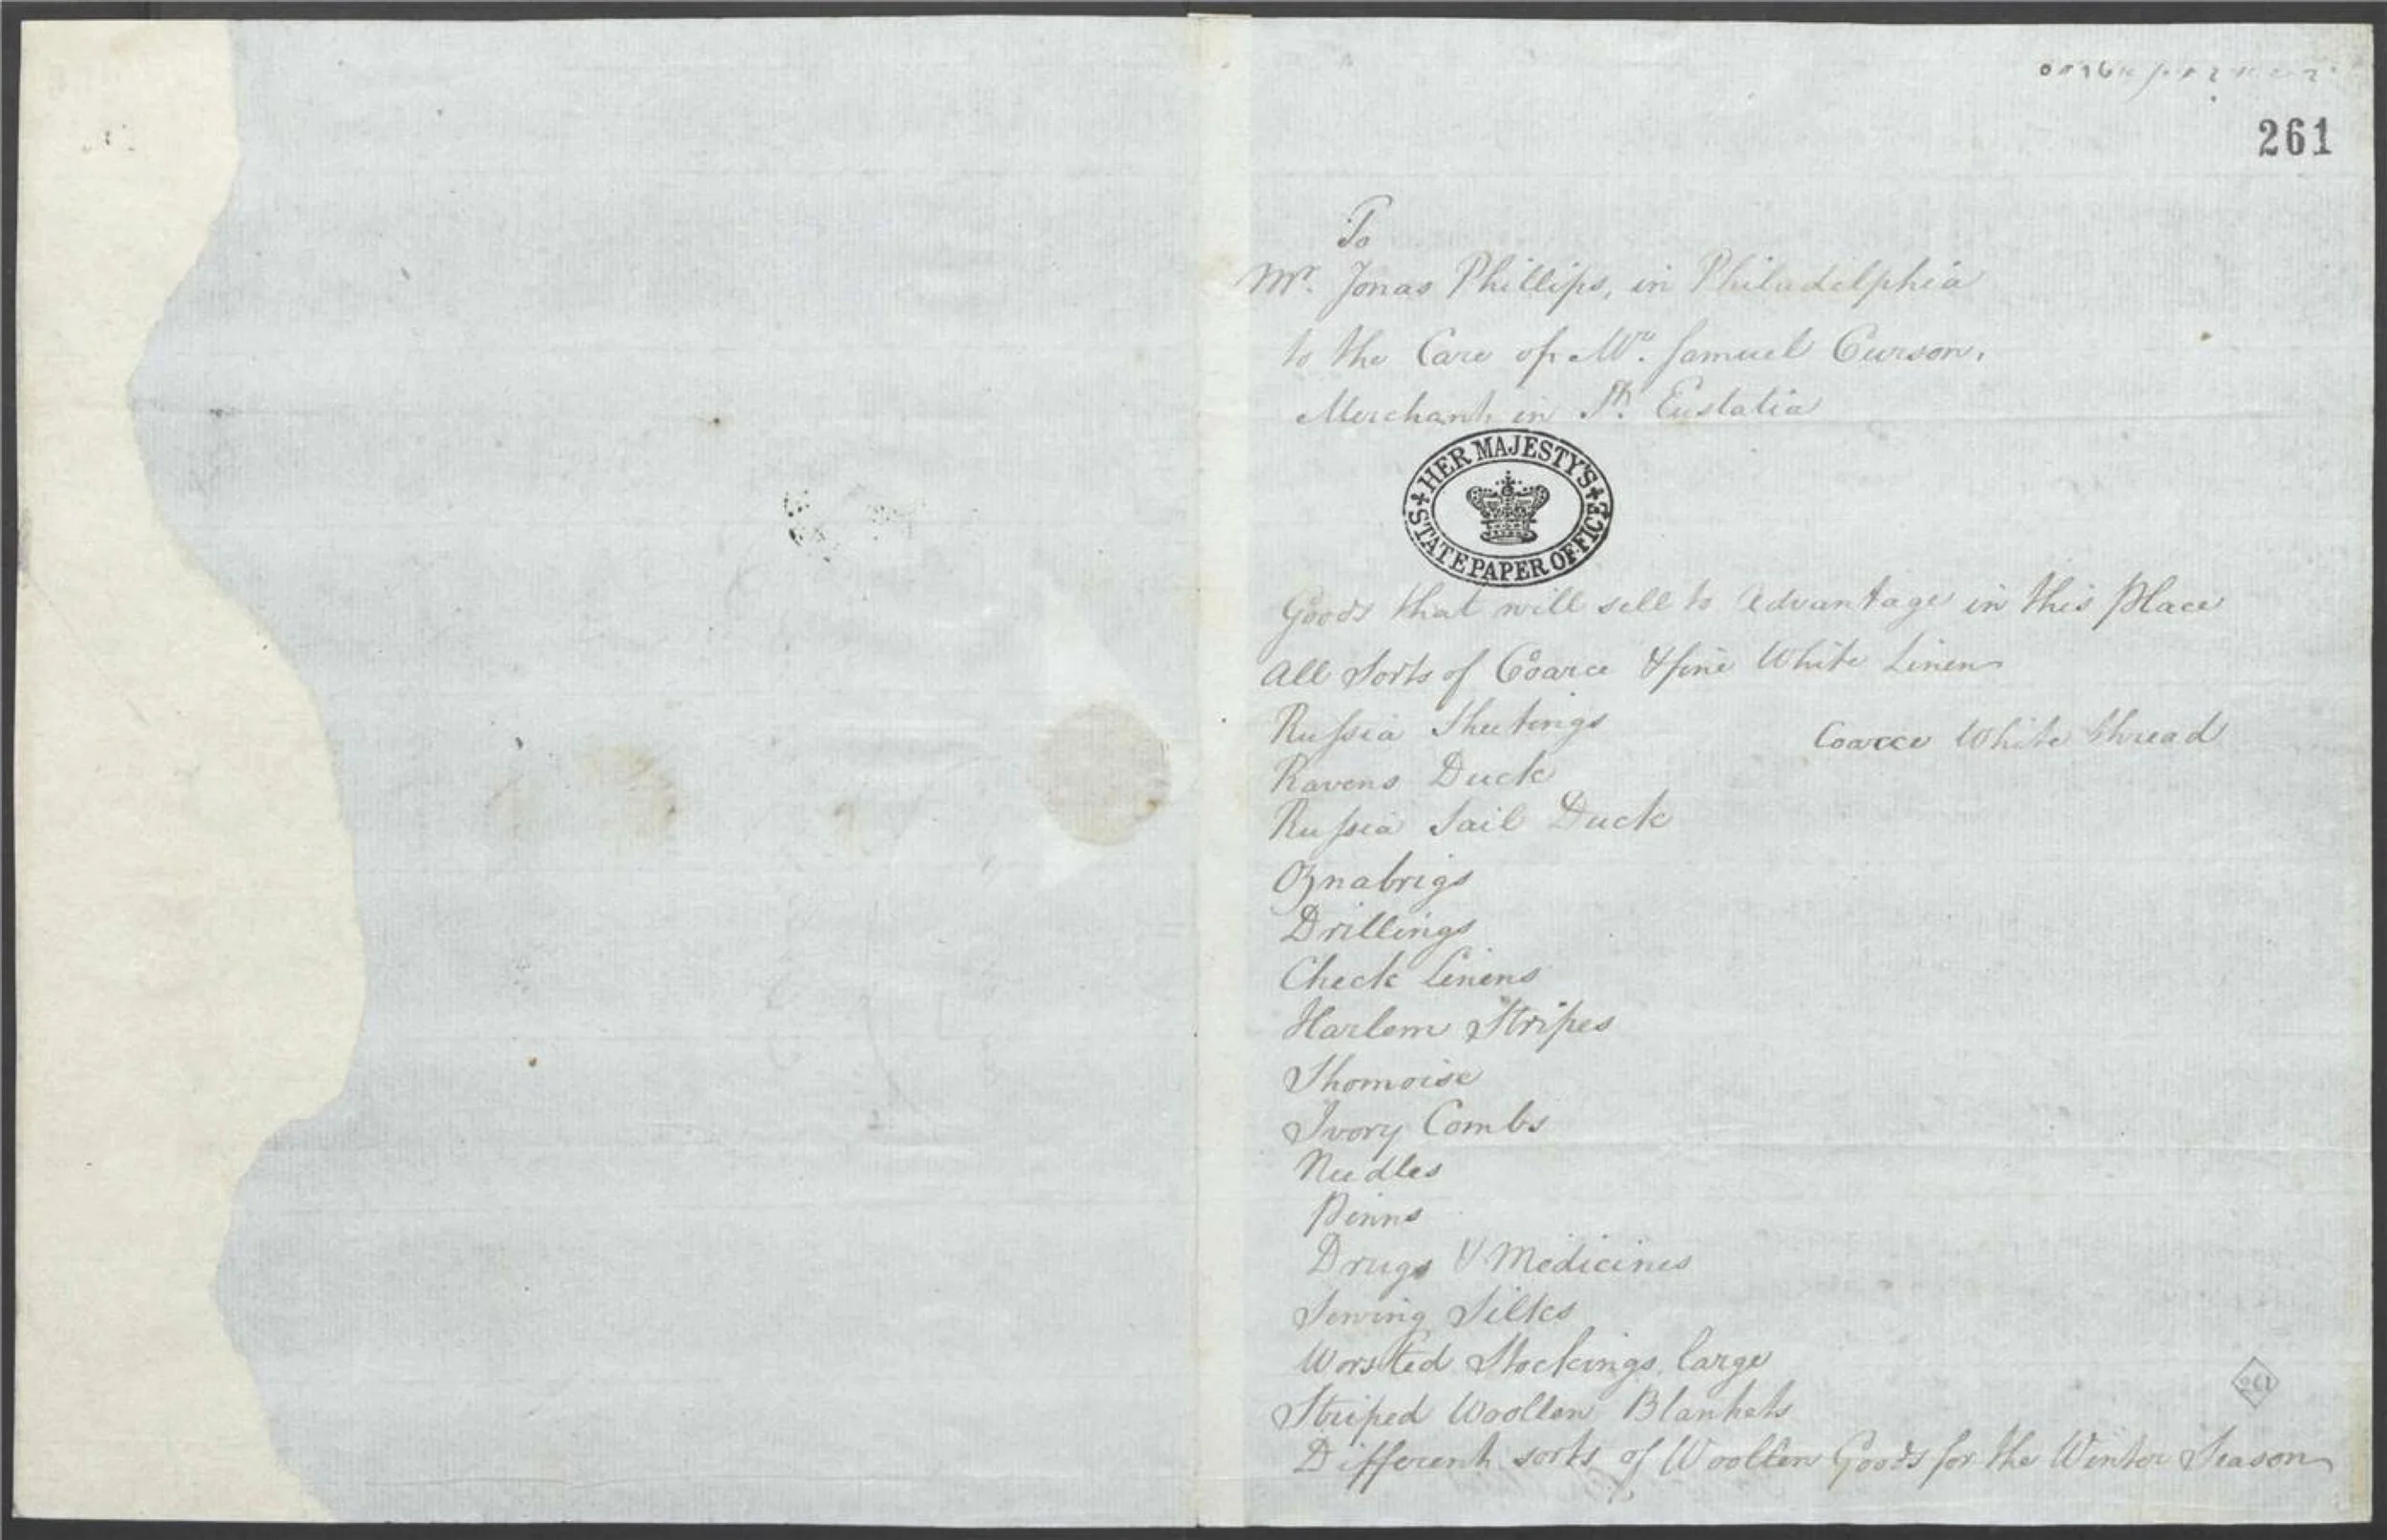 261
To
Mr. Jonas Phillips, in Philadelphia
to the Care of Mr. Samuel Curson,
Merchant in St. Eustatia
HER MAJESTY'S
STATE PAPER OFFICE
Goods that will sell to Advantage in this Place
All Sorts of Coarce & fine White Linen
Russia Sheetings
Coarce White thread
Ravens Duck
Russia Sail Duck
Oznabrigs
Drillings
Check Linens
Harlem Stripes
Ivory Combs
Needles
Pinns
Drugs & Medicines
Sewing Silks
Worsted Stockings, large
Striped Woollen Blankets
Different sorts of Woollen Goods for the Winter Season